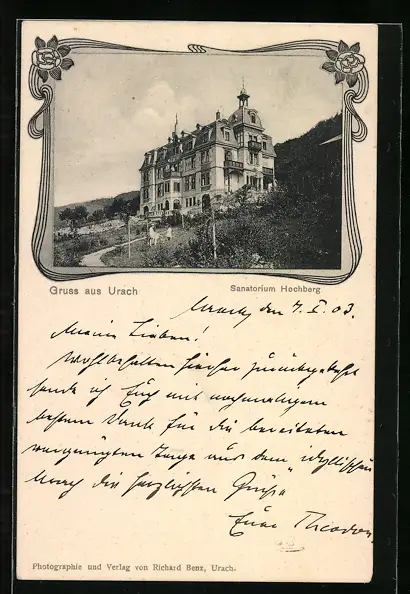 Gruss aus Urach
Sanatorium Hochberg
Urach, den 7. I. 03.
Meine Lieben!
Wohlbehalten hierher zurückgekehrt
sende ich Euch mit nochmaligem
bestem Dank für die bereiteten
vergnügten Tage aus dem "idyllischen
Urach die herzlichsten Grüße"
Euer Theodor
Photographie und Verlag von Richard Benz, Urach.